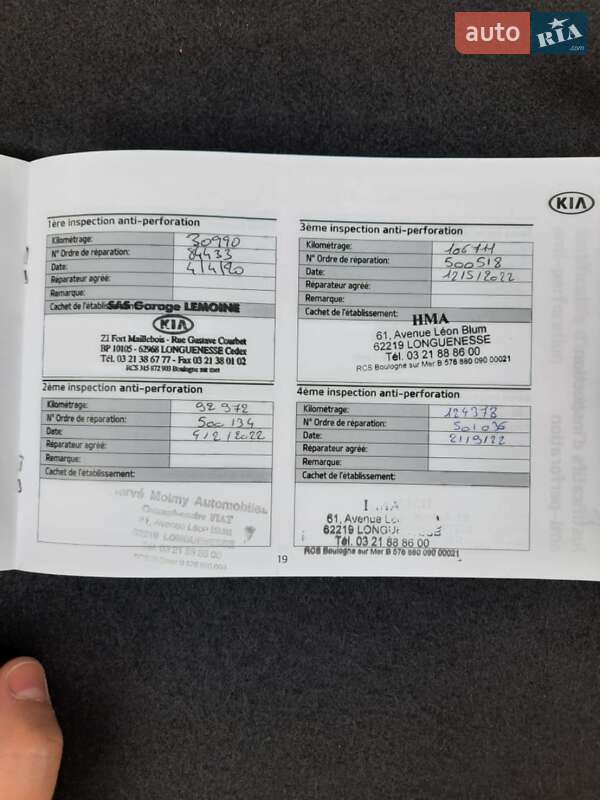 auto RIA .com
KIA
1ère inspection anti-perforation
Kilométrage: 30990
N° Ordre de réparation: 84433
Date: 4/4/20
Réparateur agréé:
Remarque:
Cachet de l'établissement:
SAS Garage LEMOINE
KIA
ZI Fort Maillebois - Rue Gustave Courbet
BP 10105 - 62968 LONGUENESSE Cedex
Tél. 03 21 38 67 77 - Fax 03 21 38 01 02
RCS 345 872 903 Boulogne sur mer
2ème inspection anti-perforation
Kilométrage: 92 972
N° Ordre de réparation: 500 134
Date: 4/2/2022
Réparateur agréé:
Remarque:
Cachet de l'établissement:
Hervé Molmy Automobiles
61, Avenue Léon Blum
62219 LONGUENESSE
Tél. 03 21 88 86 00
3ème inspection anti-perforation
Kilométrage: 106711
N° Ordre de réparation: 500518
Date: 12/5/2022
Réparateur agréé:
Remarque:
Cachet de l'établissement:
HMA
61, Avenue Léon Blum
62219 LONGUENESSE
Tél. 03 21 88 86 00
RCS Boulogne sur Mer B 576 880 090 00021
4ème inspection anti-perforation
Kilométrage: 124378
N° Ordre de réparation: 501036
Date: 2/9/22
Réparateur agréé:
Remarque:
Cachet de l'établissement:
61, Avenue
62219
Tél. 03 21 88 86 00
RCS Boulogne sur Mer B 576 880 090 00021
19